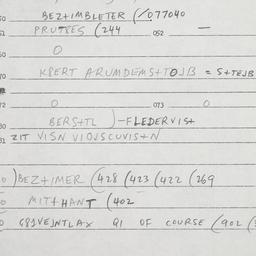 50 BEZ+IMBLETER (/077040
51 PRUTSES (244 052 —
60 O
70 KBERT ARUMDEMS+TOJB = S+TEJB
72 O 073 O
80 BERS+TL )-FLEDERVIS+
81 ZIT VISN VIOJSCUVIS+N
0 )BEZ+IMER (428 (423 (422 (269
0 MIT+HANT (402
0 G81VEJNTLAX QI OF COURSE (902 (